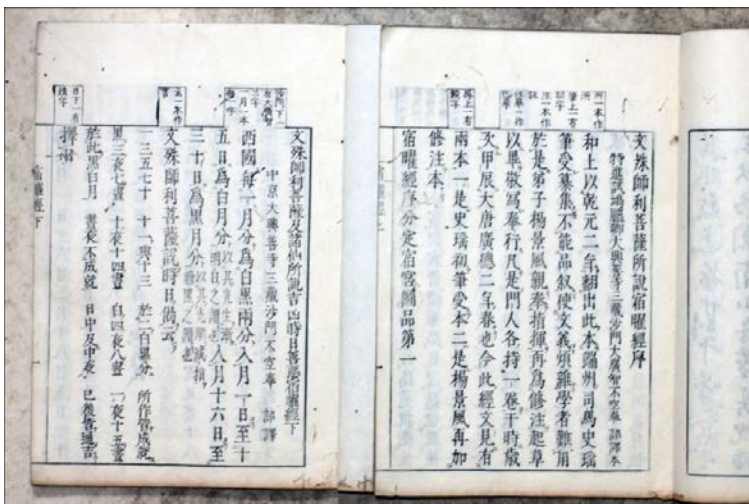 文殊師利菩薩所說宿曜經序
特進試鴻臚卿大興善寺三藏沙門大廣智不空奉 詔譯本
和上以乾元二年翻出此本端州司馬史瑤
筆受纂集不能品叙使文義煩雜學者難用
於是弟子楊景風親奉指揮再為修注起草
以畢敬寫奉行凡是門人各持一卷于時歲
次甲辰大唐廣德二年春也今此經文見有
兩本一是史瑤初筆受本二是楊景風再加
修注本
宿曜經序分定宿宮圖品第一
文殊師利菩薩及諸仙所說吉凶時日善惡宿曜經下
中京大興善寺三藏沙門不空奉 詔譯
西國每一月分為白黑兩分入月一日至十
五日為白月分以其光生漸明白之謂也入月十六日至
三十日為黑月分以其光漸減損
文殊師利菩薩說時日偈云
一三五七十 十一與十三 於二白黑分 所作皆成就
黑三夜七晝 十夜十四晝 白四夜八晝 一夜十五晝
於此黑白月 晝夜不成就 日中及中夜 已後皆通吉
宿曜經下